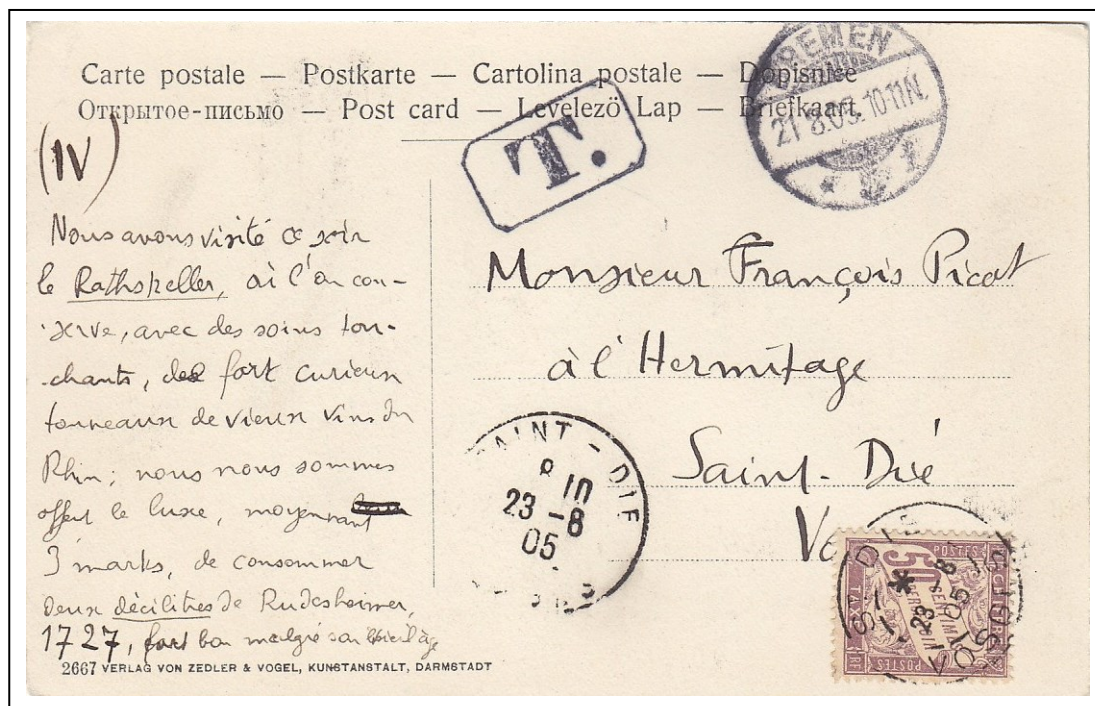 Carte postale — Postkarte — Cartolina postale — Dopisnice
Открытое-письмо — Post card — Levelezö Lap — Briefkaart.
T.
BREMEN
21.8.05.10-11N.
* 1
(IV)
Nous avons visité ce soir
le Rathskeller, où l'on con-
-serve, avec des soins tou-
-chants, de fort curieux
tonneaux de vieux vins du
Rhin; nous nous sommes
offert le luxe, moyennant
3 marks, de consommer
deux décilitres de Rudesheimer,
1727, fort bon malgré son vieil âge
Monsieur François Picot
à l'Hermitage
Saint-Dié
Vo
SAINT-DIE
8 10
23 -8
05
ST DIE
23 8
05
VOSGES
POSTES
50
CENTIMES
A PERCEVOIR
TAXE
POSTES
2667 VERLAG VON ZEDLER & VOGEL, KUNSTANSTALT, DARMSTADT